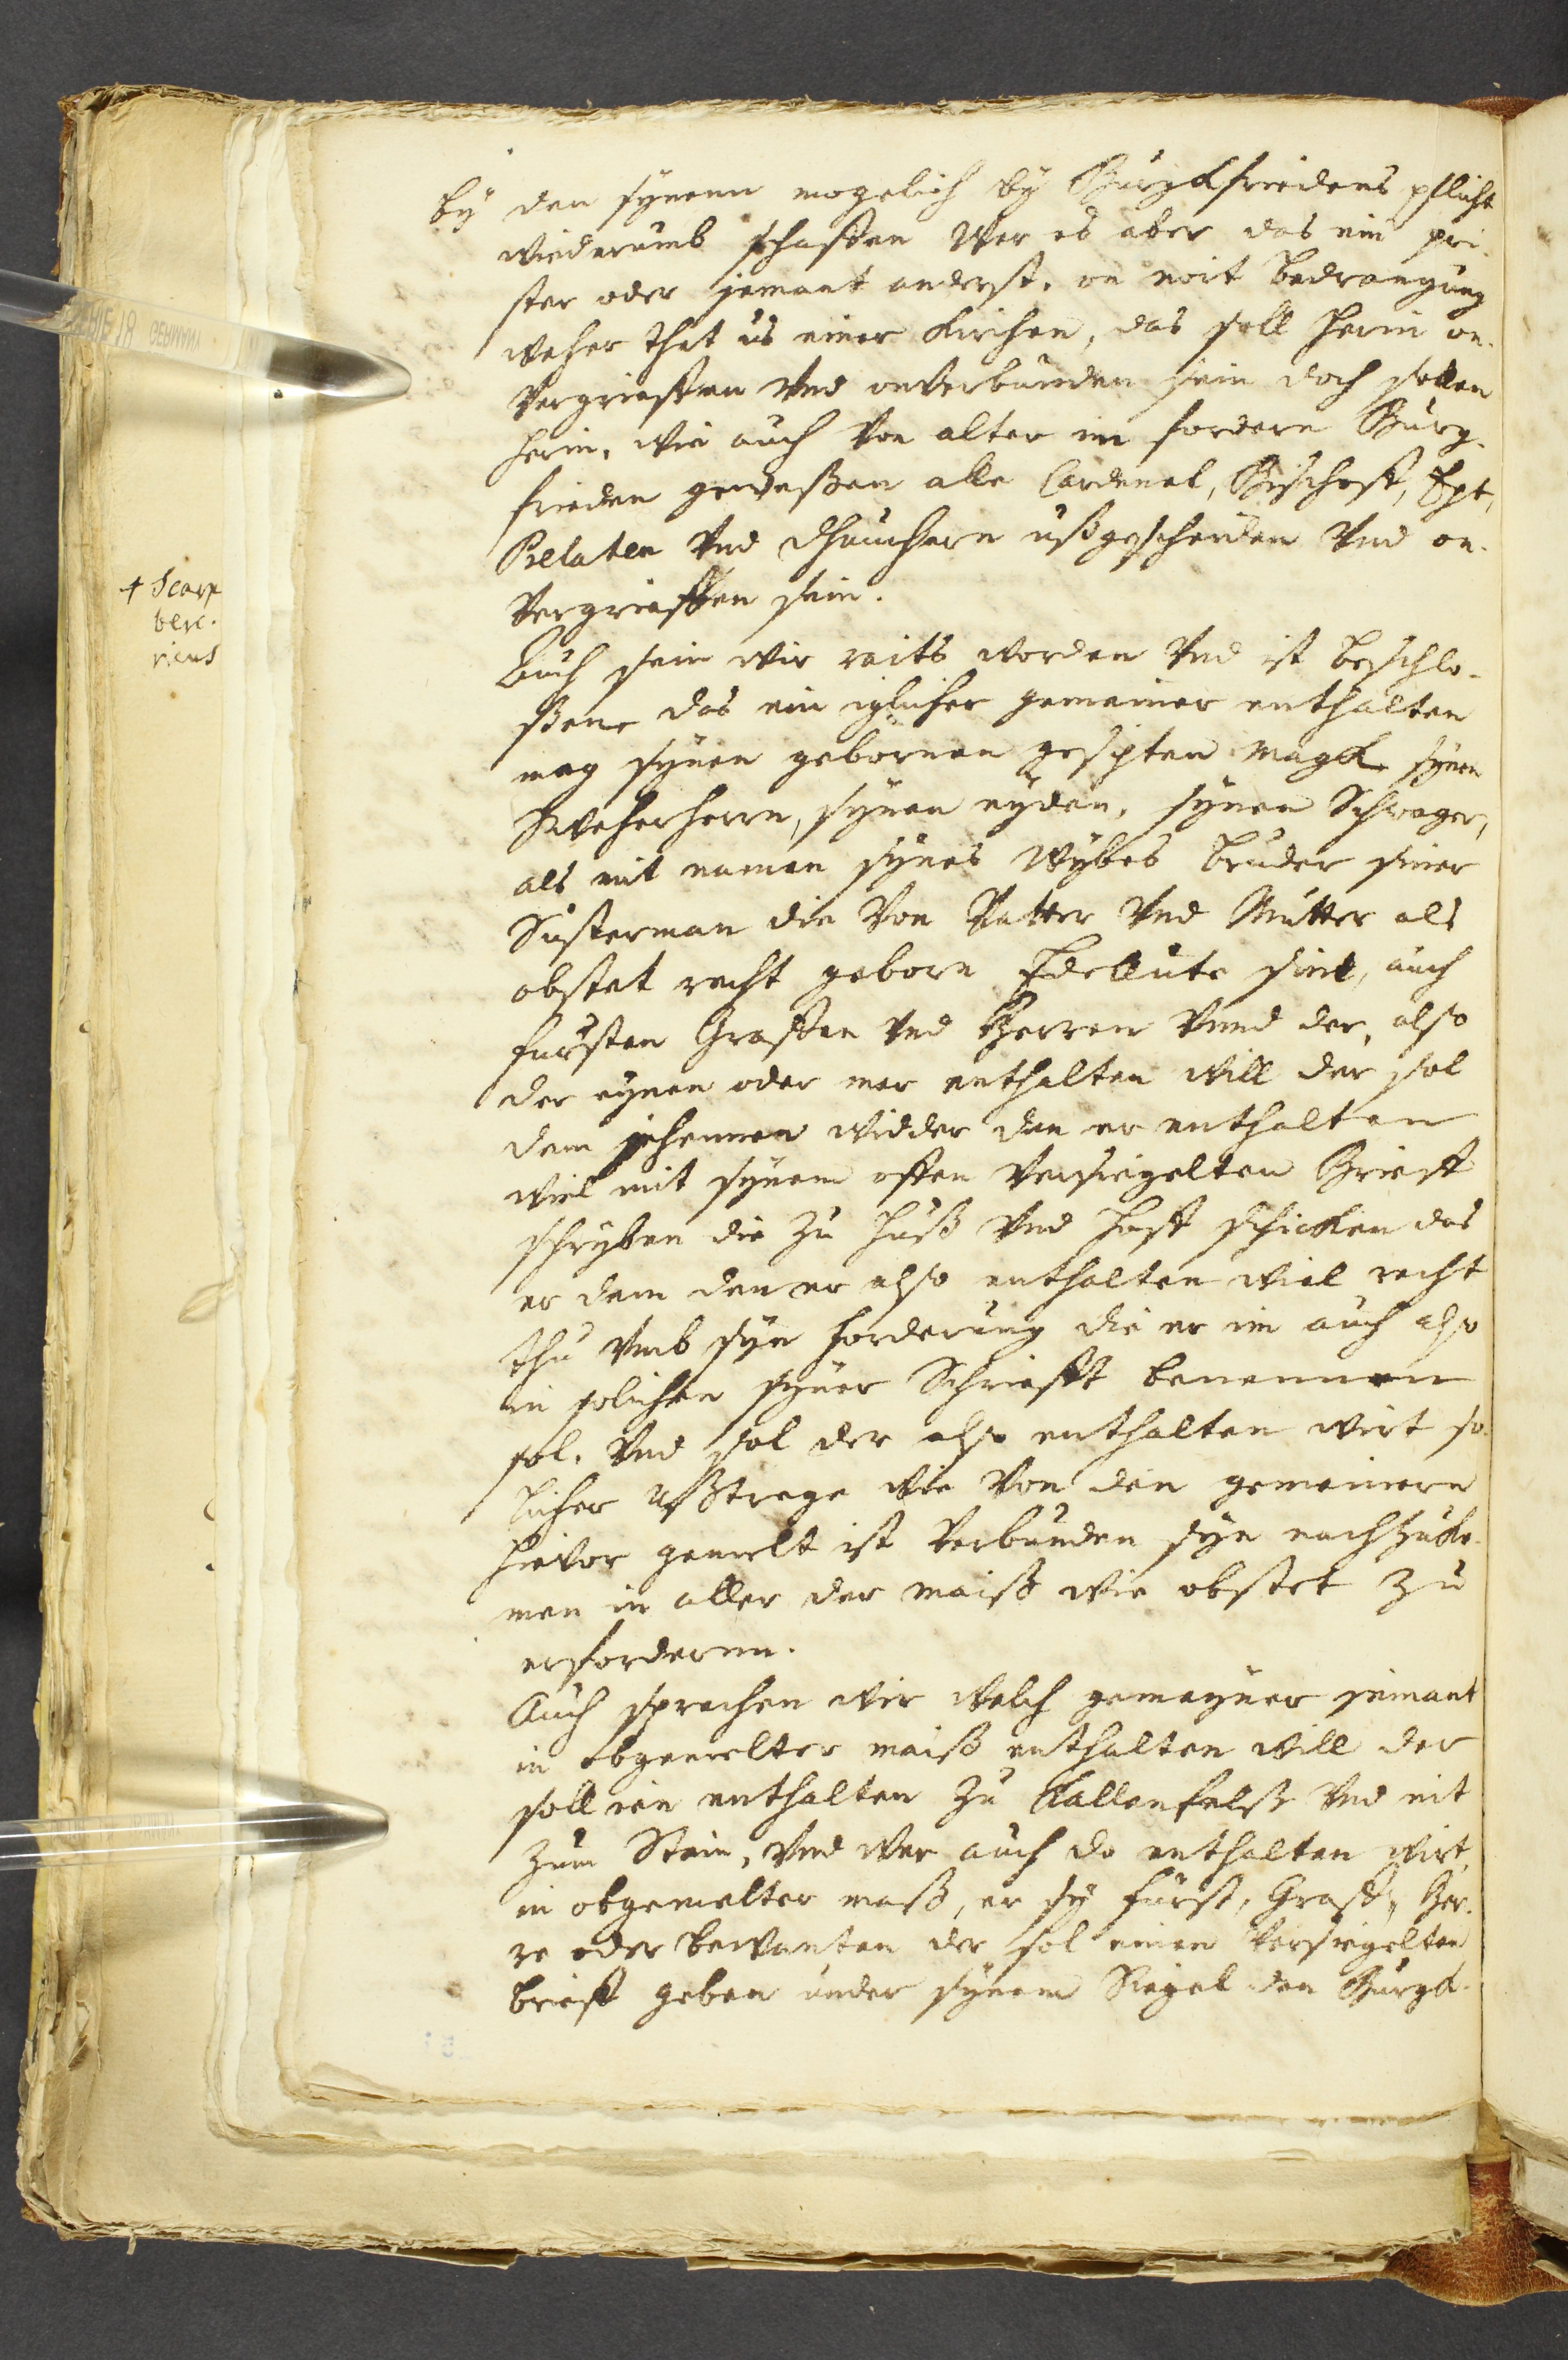 by den synenn mogelich by Burgkfriedens pflicht
wiederumb schaffen Wer es aber das ein pri-
ster oder jemant anderst, on noit bedrangung
weher that us einer kirchen, das soll herin on-
vergrieffen vnd onverbunden sein doch sollen
herin, wie auch von alter im fordern Burg-
frieden geweßen alle Cardenel, Bischoff, Ept,
Prelaten vnd Thumhern ußgescheiden vnd on-
vergrieffen sein.
Auch sein wir raits worden vnd ist beschlo-
ßenn das ein iglicher gemeiner enthalten
mag synen gebornen gesipten magk synen
Sweherhern, synen eyden, synen Schwager,
als mit namen synes wybes bruder siner
Susterman die von Vatter vnd Mutter als
obstet recht geborn Edellute sint, auch
fursten Graffen vnd Herren vnnd der, also
der eynen oder mer enthalten will der sol
dem jehennen widder den er enthalten
wiel mit synem offen versiegelten Brieff
schryben die zu huß vnd hoff schicken das
er dem den er also enthalten wiel recht
thu vmb syn forderung die er im auch also
in solichen syner Schriefft benennen
sol. Vnd sol der also enthalten wirt so-
licher ußtrege wie von den gemeinern
hievor gemelt ist verbunden syn nachzuko-
men in aller der maiß wie obstet zu
erforderen.
Auch sprechen wir welch gemeyner jemant
in obgemelter maiß enthalten will der
soll ien enthalten zu Kallenfelß vnd nit
zum Stein, vnd wer auch do enthalten wirt
in obgemelter maß, er sy fürst, Graff, Her-
re oder bewanten der sol einen versiegelten
brieff geben under synem Siegel den Burgk-